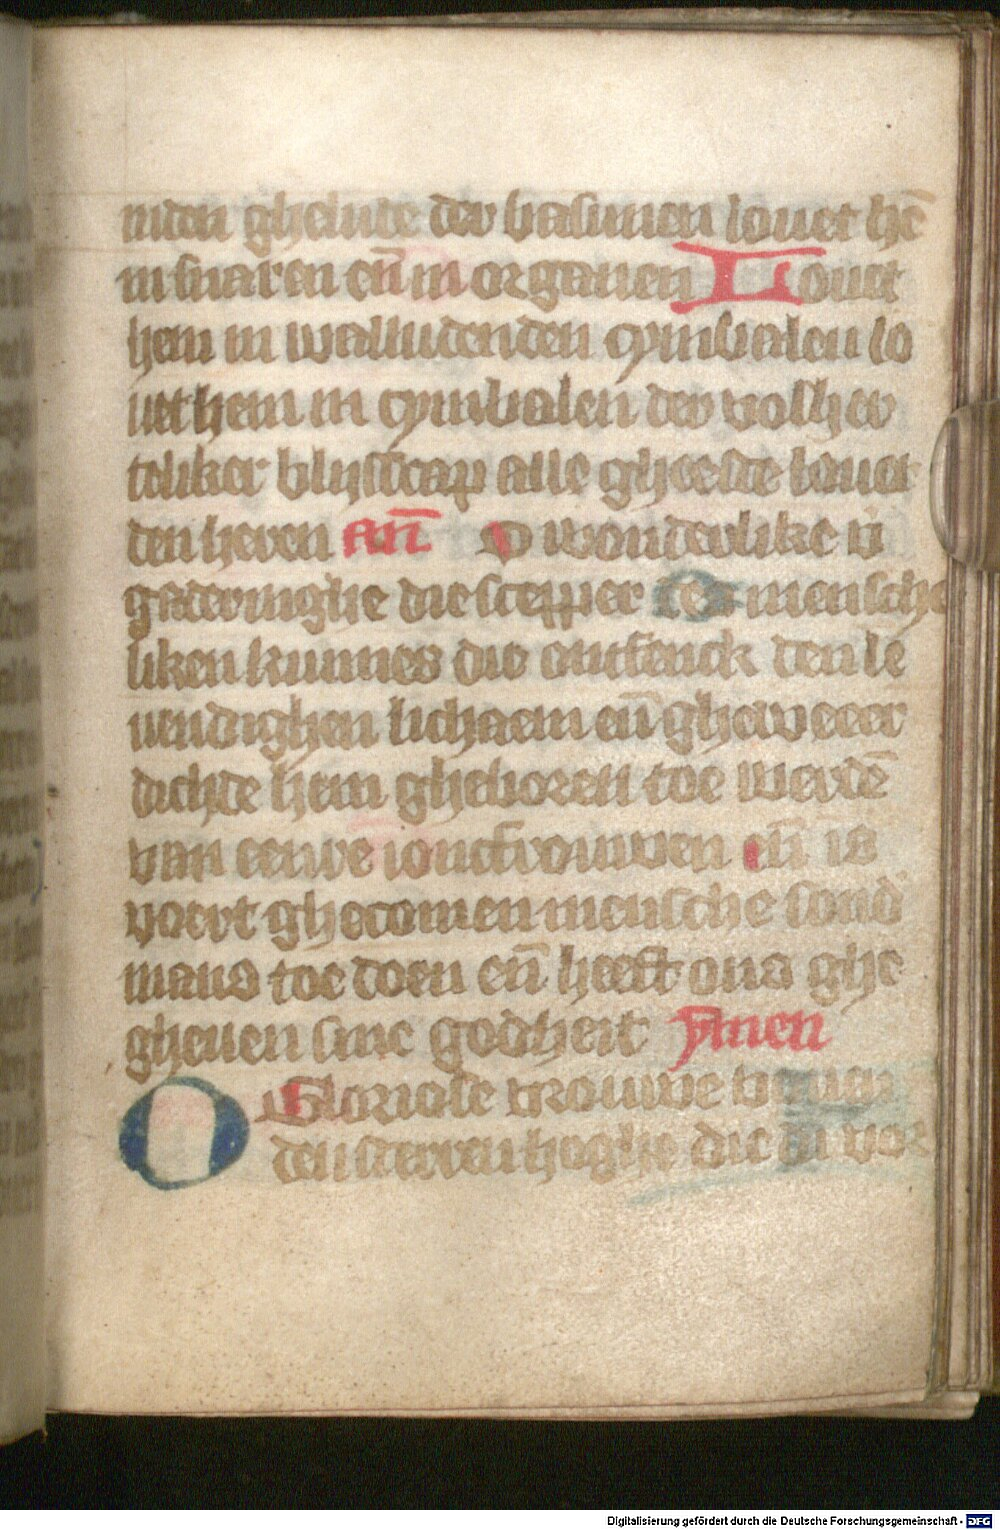 inden ghelude der basunen louet hē
in snaren eñ in organen Louet
hem in walludenden cymbalen lo
uet hem in cymbalen der vrolher
teliker blijsscap alle gheeste louet
den heren Añ O wonderlike v
gaderinghe die scepper des mensche
liken kunnes die ontfenck den le
uendighen lichaem eñ gheweeer
dichde hem gheboren toe werdē
van eenre ioncfrouwen eñ is
voert ghecomen mensche sond
mans toe doen eñ heeft ons ghe
gheuen sine godheit ymen
O Gloriose vrouwe bouen
den sterren hoghe die di vor
Digitalisierung gefördert durch die Deutsche Forschungsgemeinschaft - DFG